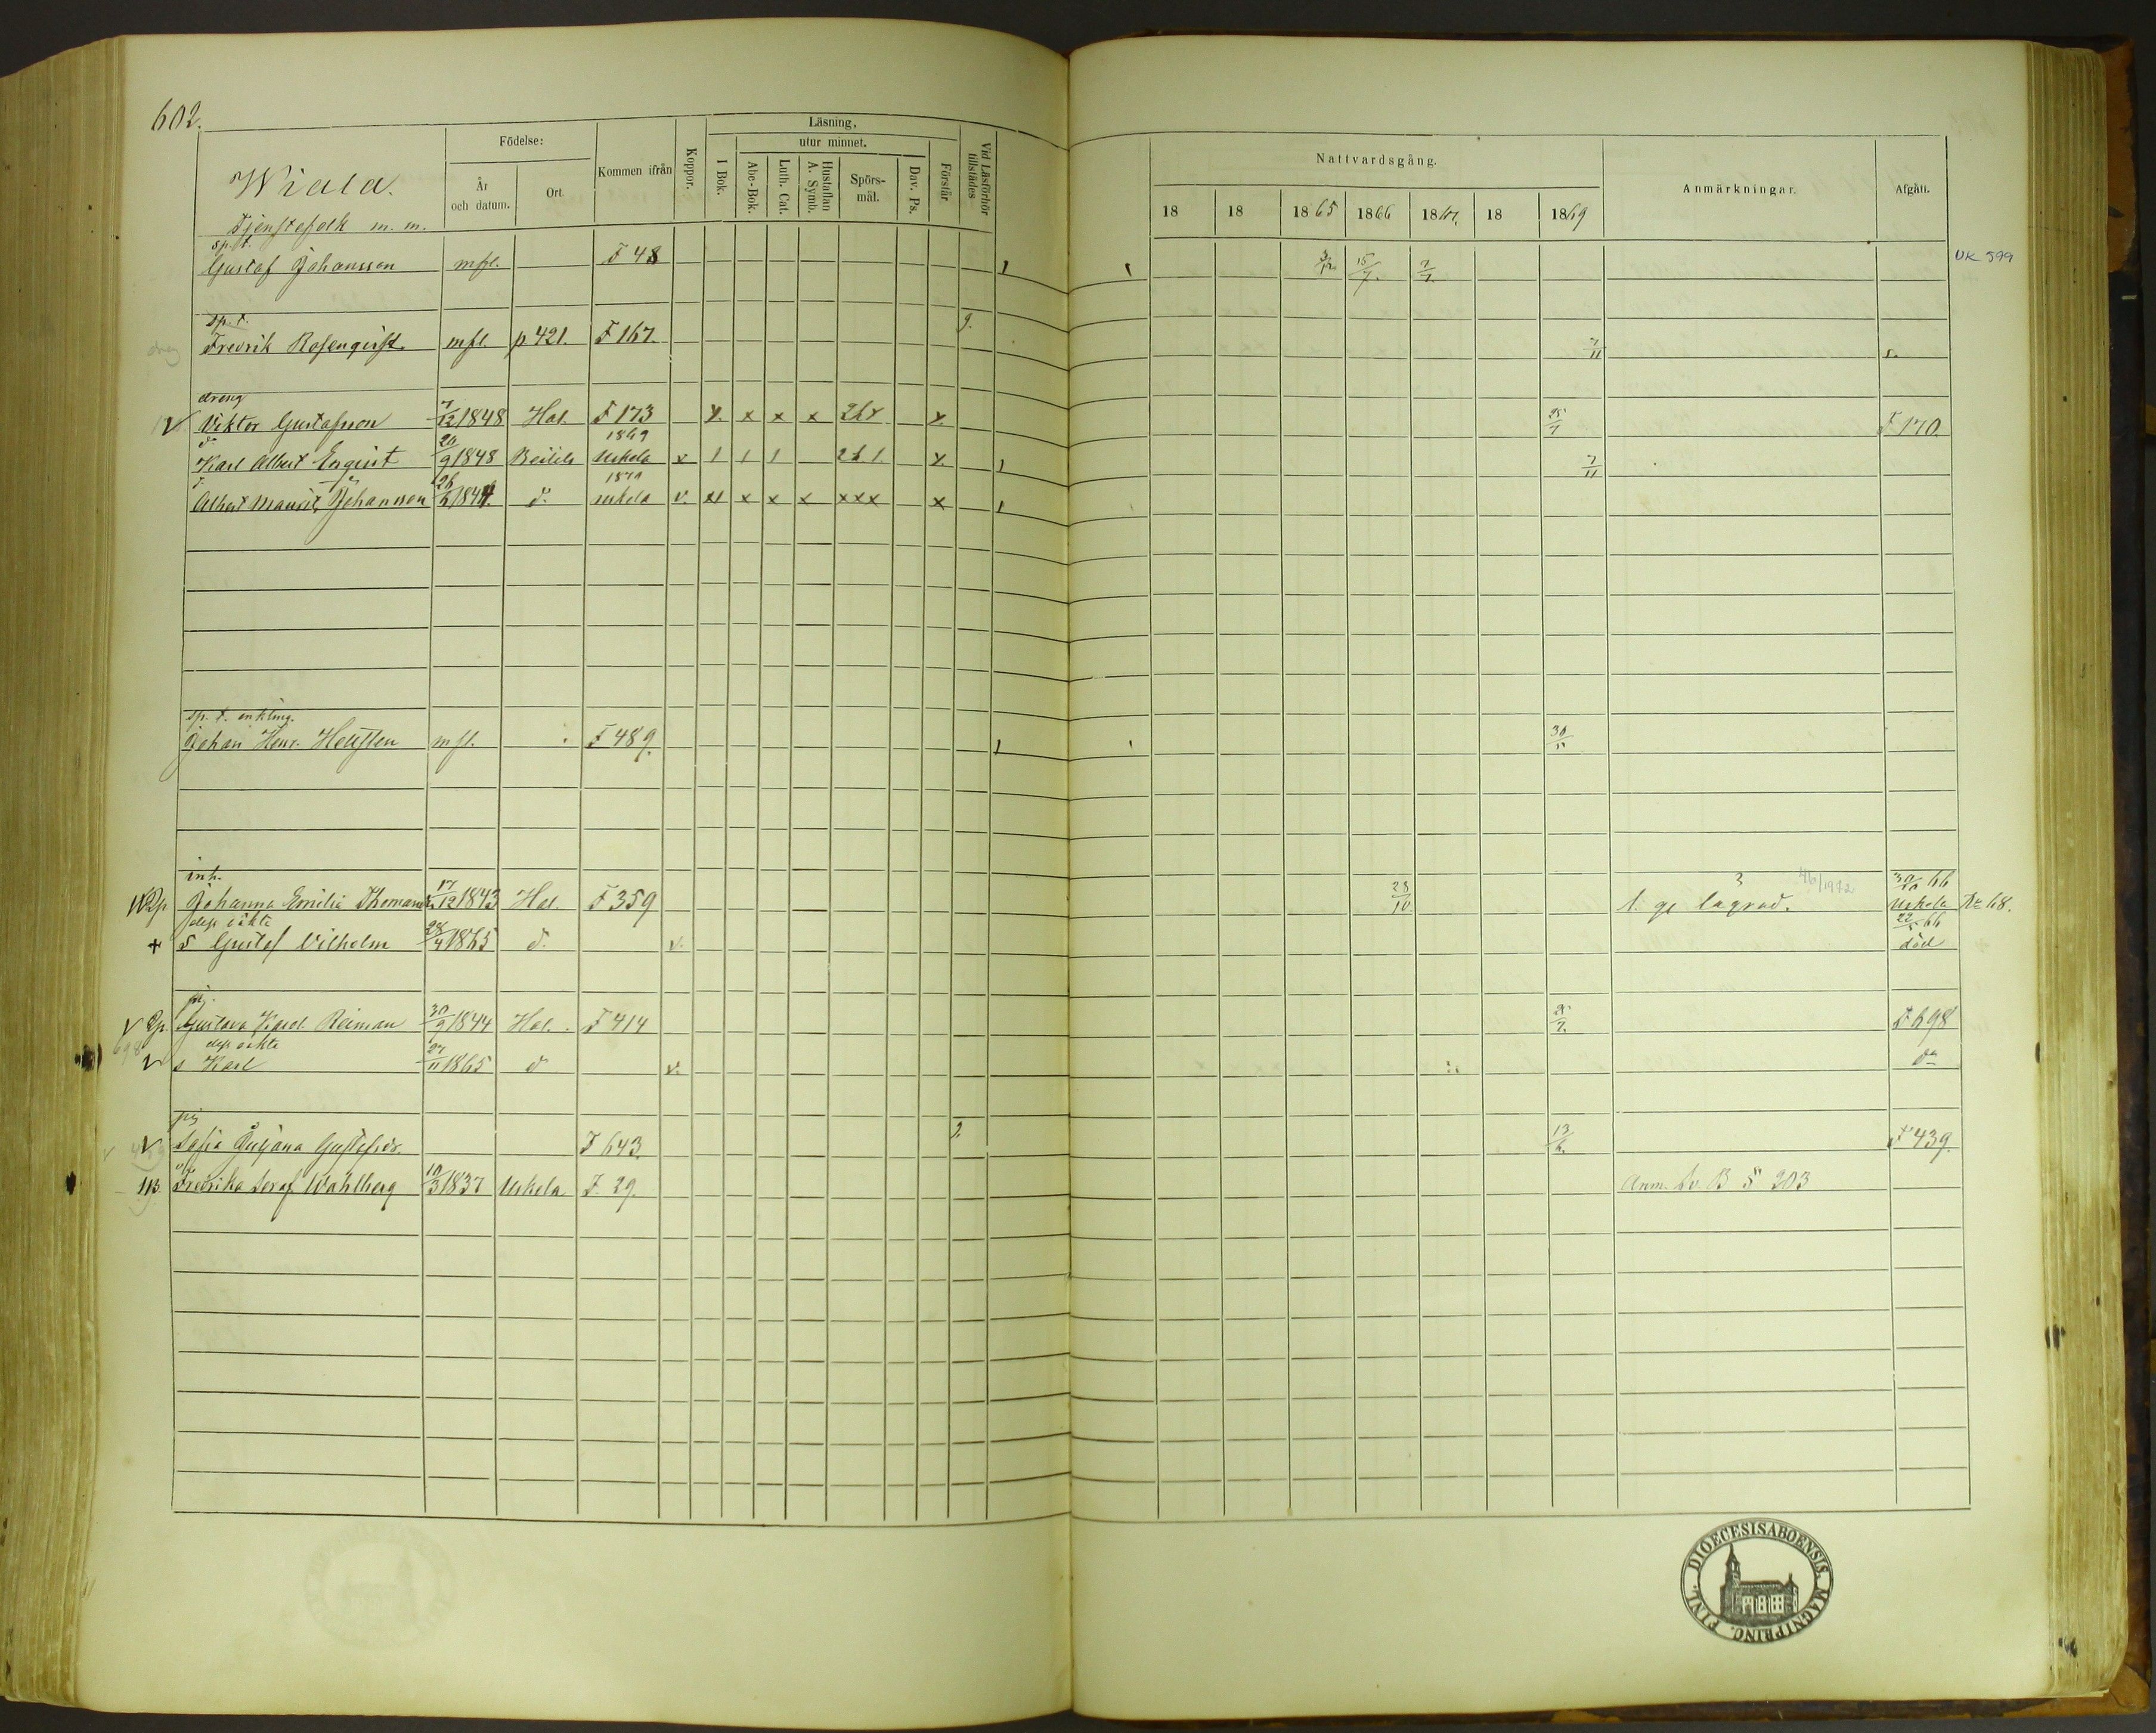 602.
Wiala.
Tjenstefolk m. m.
Födelse:
År och datum.
Ort.
Kommen ifrån
Koppor.
Läsning,
utur minnet.
I Bok.
Abc-Bok.
Luth. Cat.
Hustaflan A. Symb.
Spörsmål.
Dav. Ps.
Förstår
Vid Läsförhör tillstädes
Nattvardsgång.
18 18 1865 1866 1867 18 1869
Anmärkningar.
Afgått.
sp. t.
Gustaf Johansson mfl. F 48 15/7 UK 599
sp. t.
Fredrik Rosenqvist mfl. p 421. F 167. 7/11
dreng
Viktor Gustafsson 7/12 1848 Hal. F 173 x x x x 25/7 F 170.
1869
Karl Albert Enqvist 20/9 1848 Uskela 1 1 1 7/11
Albert Maurits Johansson 26/6 184 d:o uskela v. x x x xxx x
sp. t. enkling.
Johan Henr. Hellsten mfl. F 489. 30/11
inh.
Johanna Emilia Thomand. 17/12 1843 Hal. F 359 28/10 1. ge lägrad. 46/1972 30/10 66 Uskela No 68.
dess oäkta
+ s Gustaf Vilhelm 28/4 1865 d:o v. 22/5 66 död
pig.
Gustava Karol. Reiman 30/9 1844 Hal. F 414 F 698
698
dess oäkta
s Karl 27/11 1865 d:o v. d:o
pig
Sofia Juljana Gustafsdr. F 643. 13/6. F 439.
Fredrika Seraf. Wahlberg 10/3 1837 Uskela F. 29. Anm. Sv. B § 203
FINL. DIOECESIS ABOENSIS. MAGNI PRINC.